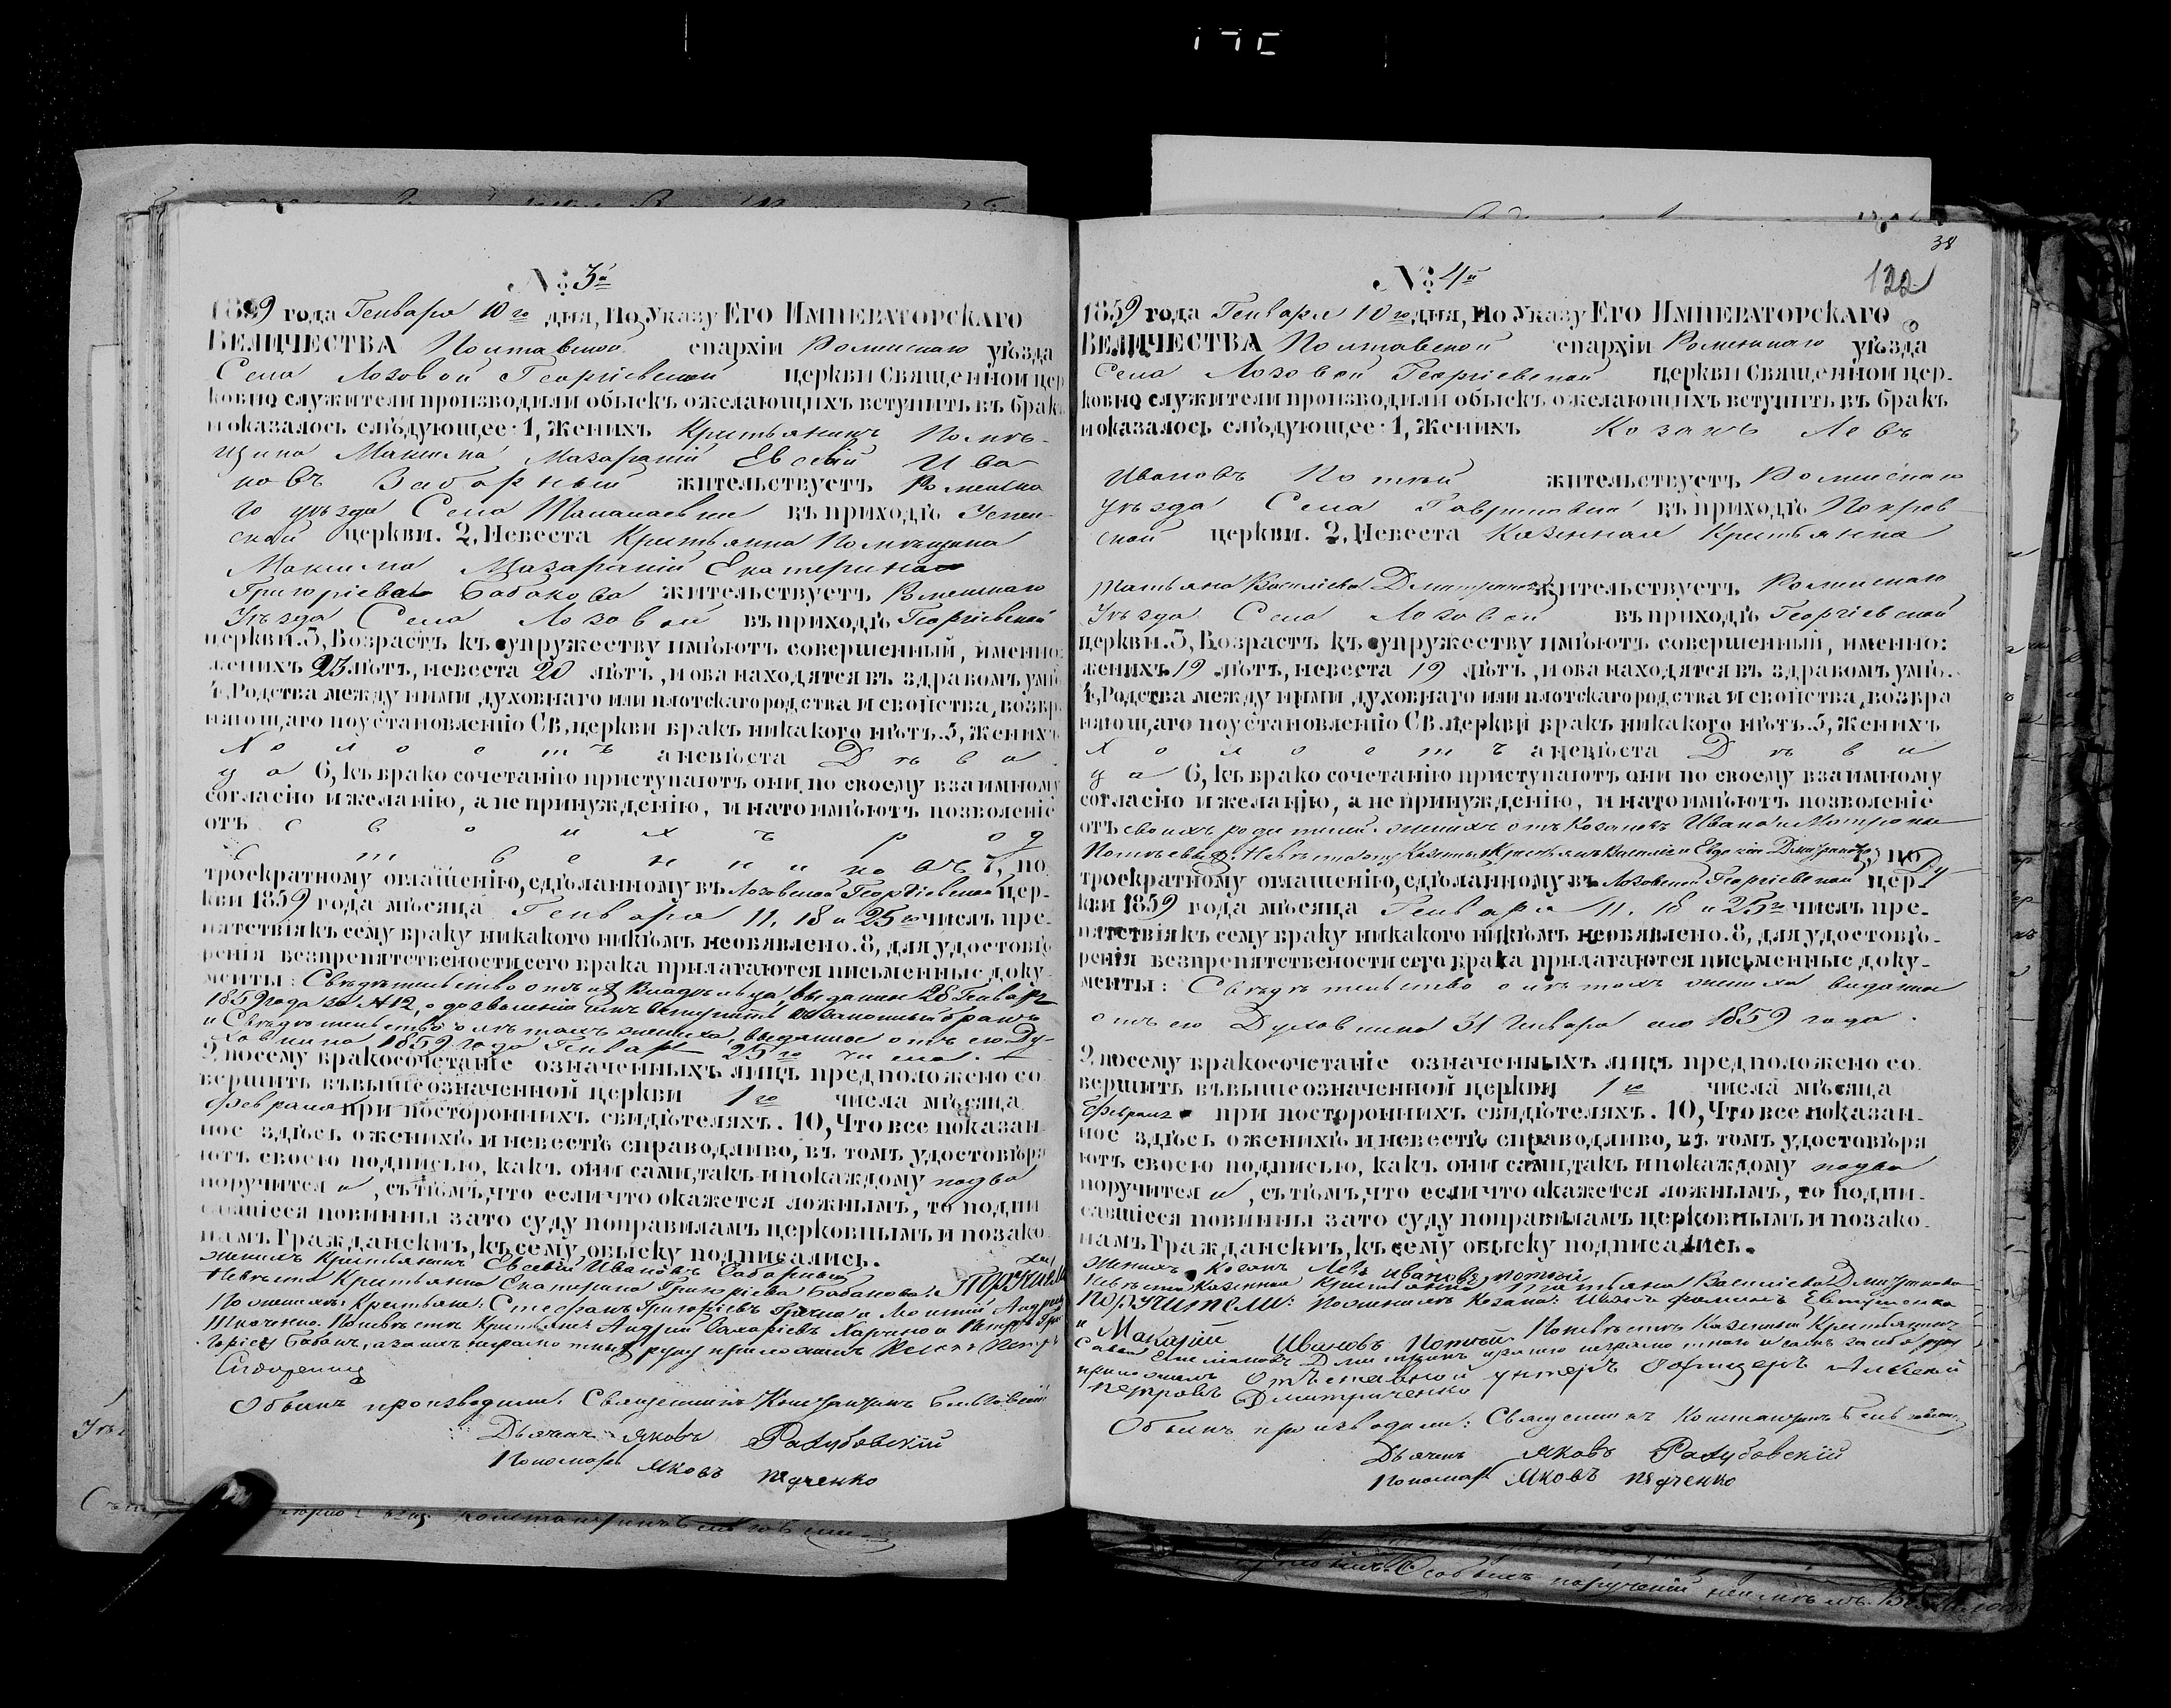 № 3й
1859 года Генваря 10го дня, По Указу ЕГО ИМПЕРАТОРСКАГО
ВЕЛИЧЕСТВА Полтавской епархіи Роменскаго уѣзда
Села Лозовой Георгіевской церкви Священной цер
ковно служители производили обыскъ о желающихъ вступить въ бракъ
и оказалось слѣдующее: 1, Женихъ Крестьянинъ Помѣ-
щика Максима Мазаракій Евсевій Ива
новъ Заборный жительствуетъ Роменска
го уѣзда Села въ приходѣ Успен-
ской церкви. 2, Невеста Крестьянка Помѣщика
Максима Мазаракій Екатерина
Григоріева Бабакова жительствуетъ Роменскаго
Уѣзда Села Лозовой въ приходѣ Георгіевской
церкви. 3, Возрастъ къ супружеству имѣютъ совершенный, именно:
женихъ 23 лѣтъ, невеста 20 лѣтъ, и оба находятся въ здравомъ умѣ
4, Родства между ними духовнаго или плотскаго родства и свойства, возбр
няющаго по установленію Св. церкви бракъ никакого нѣтъ. 5, Женихъ
Холостъ а невѣста Дѣви
ца 6, къ брако сочетанію приступаютъ они по своему взаимному
согласію и желанію, а не принужденію, и на то имѣютъ позволеніе
отъ своихъ род
ственниковъ 7, по
троекратному оглашенію, сдѣланному въ Лозовской Георгіевской цер-
кви 1859 года мѣсяца Генваря 11, 18 и 25го числъ пре-
пятствія къ сему браку никакого никѣмъ необявлено. 8, для удостовѣ
ренія безпрепятствености сего брака прилагаются письменные доку
менты: Свѣдѣтельство отъ их Владѣльца, выданное 28 Генваря
1859 года за №12, о дозволеніи имъ вступить въ законный бракъ
и Свѣдѣтельство о лѣтахъ жениха, выданное отъ его Ду-
ховника 1859 года Генваря 25го числа.
9, посему бракосочетаніе означенныхъ лицъ предположено со
вершить въ вышеозначенной церкви 1го числа мѣсяца
Февраля при постороннихъ свидѣтеляхъ. 10, Что все показан
ное здѣсь о женихѣ и невестѣ справодливо, въ томъ удостовѣря
ютъ своею подписью, какъ они сами, такъ и по каждому по два
поручителя, съ тѣмъ, что если что окажется ложнымъ, то подпи
савшіеся повинны за то суду по правиламъ церковнымъ и по зако
намъ Гражданским, къ сему обыску подписались.
женихъ Крестьянинъ Евсевій Ивановъ Заборный
Невѣста Крестьянка Екатерина Григоріева Бабакова. Поручители
По женихѣ: Крестьяне: Стефанъ Григоріевъ и
Ткаченко. По невѣстѣ Крестьяне Андрей Харченко и Петръ Гри
горіевъ Бабакъ, а за нихъ неграмотныхъ руку приложилъ
Сидоренко
Обыскъ производили: Священникъ Константинъ
Дьячекъ Яковъ Ракубовскій
Пономарь Яковъ
38
122
№ 4й
1859 года Генваря 10го дня, По Указу ЕГО ИМПЕРАТОРСКАГО
ВЕЛИЧЕСТВА Полтавской епархіи Роменскаго уѣзда
Села Лозовой Георгіевской церкви Священной цер-
ковно служители производили обыскъ о желающихъ вступить въ бракъ
и оказалось слѣдующее: 1, Женихъ Козакъ Левъ
Ивановъ Потый жительствуетъ Роменскаго
уѣзда Села Гавриловки въ приходѣ Покров-
ской церкви. 2, Невеста Казенная Крестьянка
Татьяна Василіева Дмитренкова жительствуетъ Роменскаго
Уѣзда Села Лозовой въ приходѣ Георгіевской
церкви. 3, Возрастъ къ супружеству имѣютъ совершенный, именно:
женихъ 19 лѣтъ, невеста 19 лѣтъ, и оба находятся въ здравомъ умѣ.
4, Родства между ними духовнаго или плотскаго родства и свойства, возбра
няющаго по установленію Св. церкви бракъ никакого нѣтъ. 5, Женихъ
Холостъ а невѣста Дѣви
ца 6, къ брако сочетанію приступаютъ они по своему взаимному
согласію и желанію, а не принужденію, и на то имѣютъ позволеніе
отъ своихъ родителей. женихъ отъ Козаковъ Ивана и Матроны
Невѣста отъ Казенныхъ Крестьянъ Василія и Евдокіи 7, по
троекратному оглашенію, сдѣланному въ Лозовской Георгіевской цер
кви 1859 года мѣсяца Генваря 11, 18 и 25го числъ пре-
пятствія къ сему браку никакого никѣмъ необявлено. 8, для удостовѣ-
ренія безпрепятствености сего брака прилагаются писменные доку-
менты: Свѣдѣтельство о лѣтахъ жениха виданное
отъ его Духовника 31 Генваря сего 1859 года.
9, посему бракосочетаніе означенныхъ лицъ предположено со
вершить въ вышеозначенной церкви 1го числа мѣсяца
Февраля при постороннихъ свидѣтеляхъ. 10, Что все показан-
ное здѣсь о женихѣ и невестѣ справодливо, въ томъ удостовѣря
ютъ своею подписью, какъ они сами, такъ и по каждому по два
поручителя, съ тѣмъ, что если что окажется ложнымъ, то подпи-
савшіеся повинны за то суду по правиламъ церковнымъ и по зако-
намъ Гражданским, къ сему обыску подписались.
Женихъ Козакъ Левъ Ивановъ потый
Невѣста Казенная Крестьянка Татьяна Василіева Дмитренкова
Поручители: По женихѣ Козаки: Иванъ Евтушенко
и Макарій Ивановъ Потый. По невѣстѣ Казенный Крестьянинъ
Савва Емельяновъ и за себя руку
приложилъ Отъставной унтеръ Офицеръ Алексей
петровъ Дмитриченко
Обыскъ производили: Священникъ Константинъ
Дьячекъ Яковъ Ракубовскій
Пономарь Яковъ